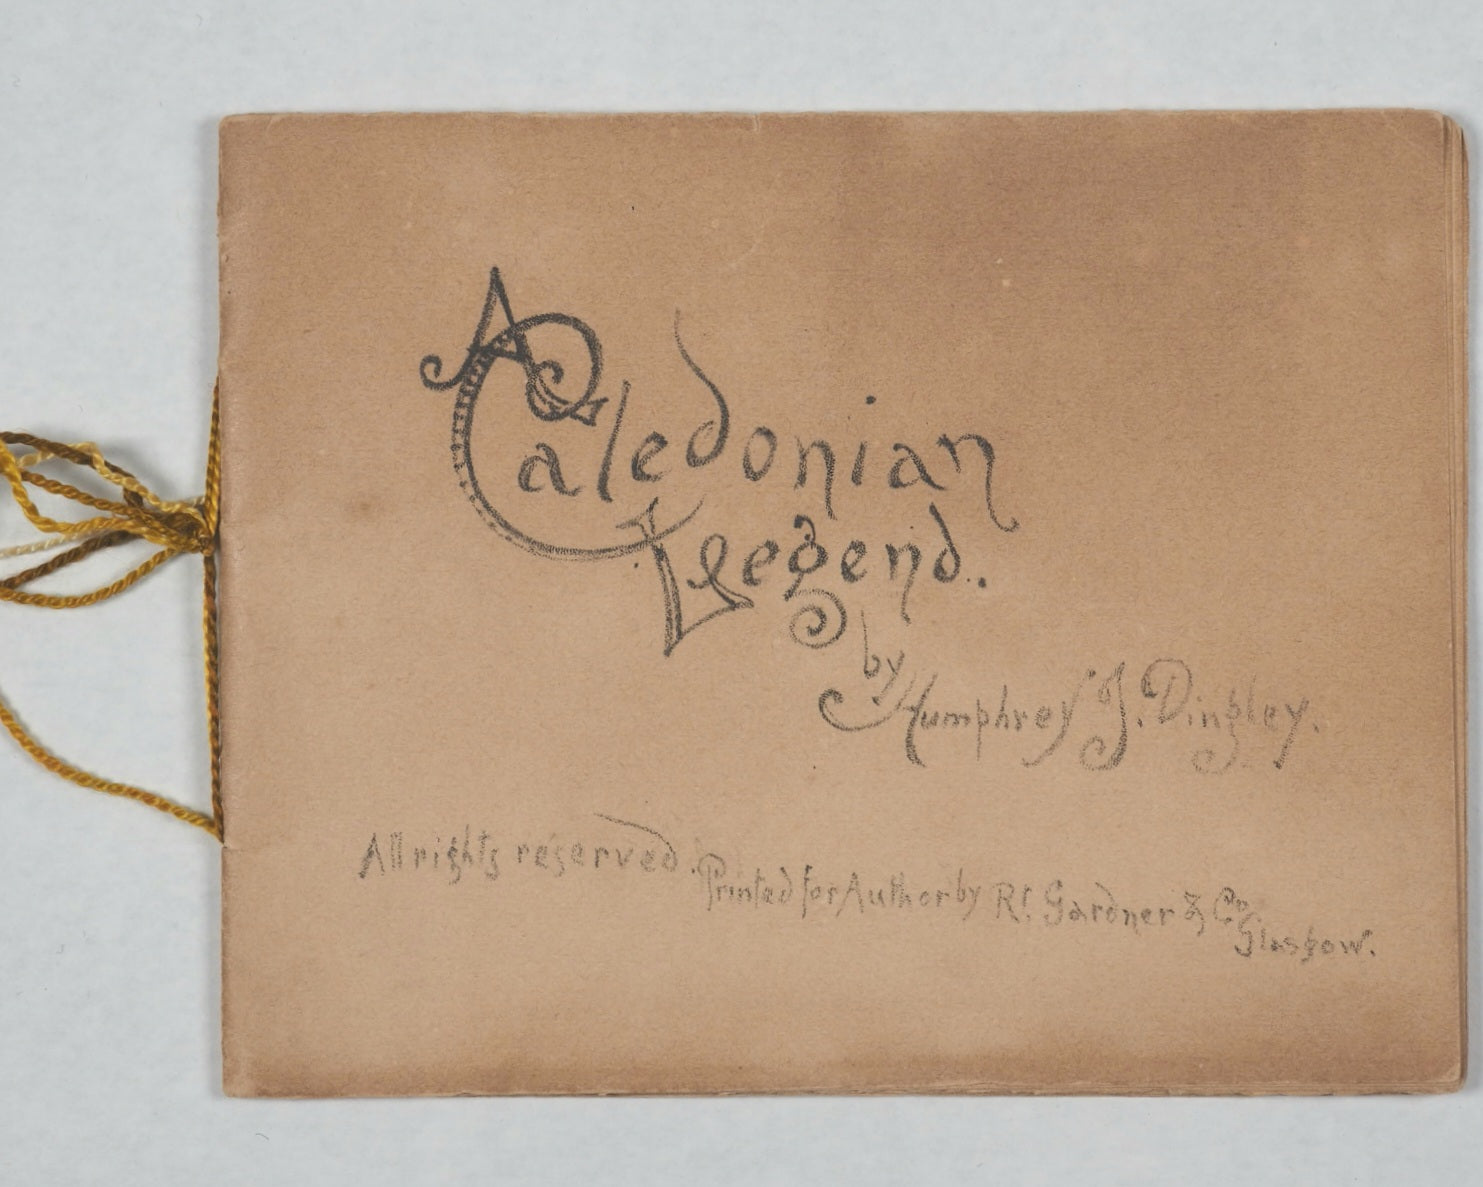 A
Caledonian
Leegend.
by
Humphrey J. Dingley.
All rights reserved. Printed for Author by Rt. Gardner & Co.
Glasgow.